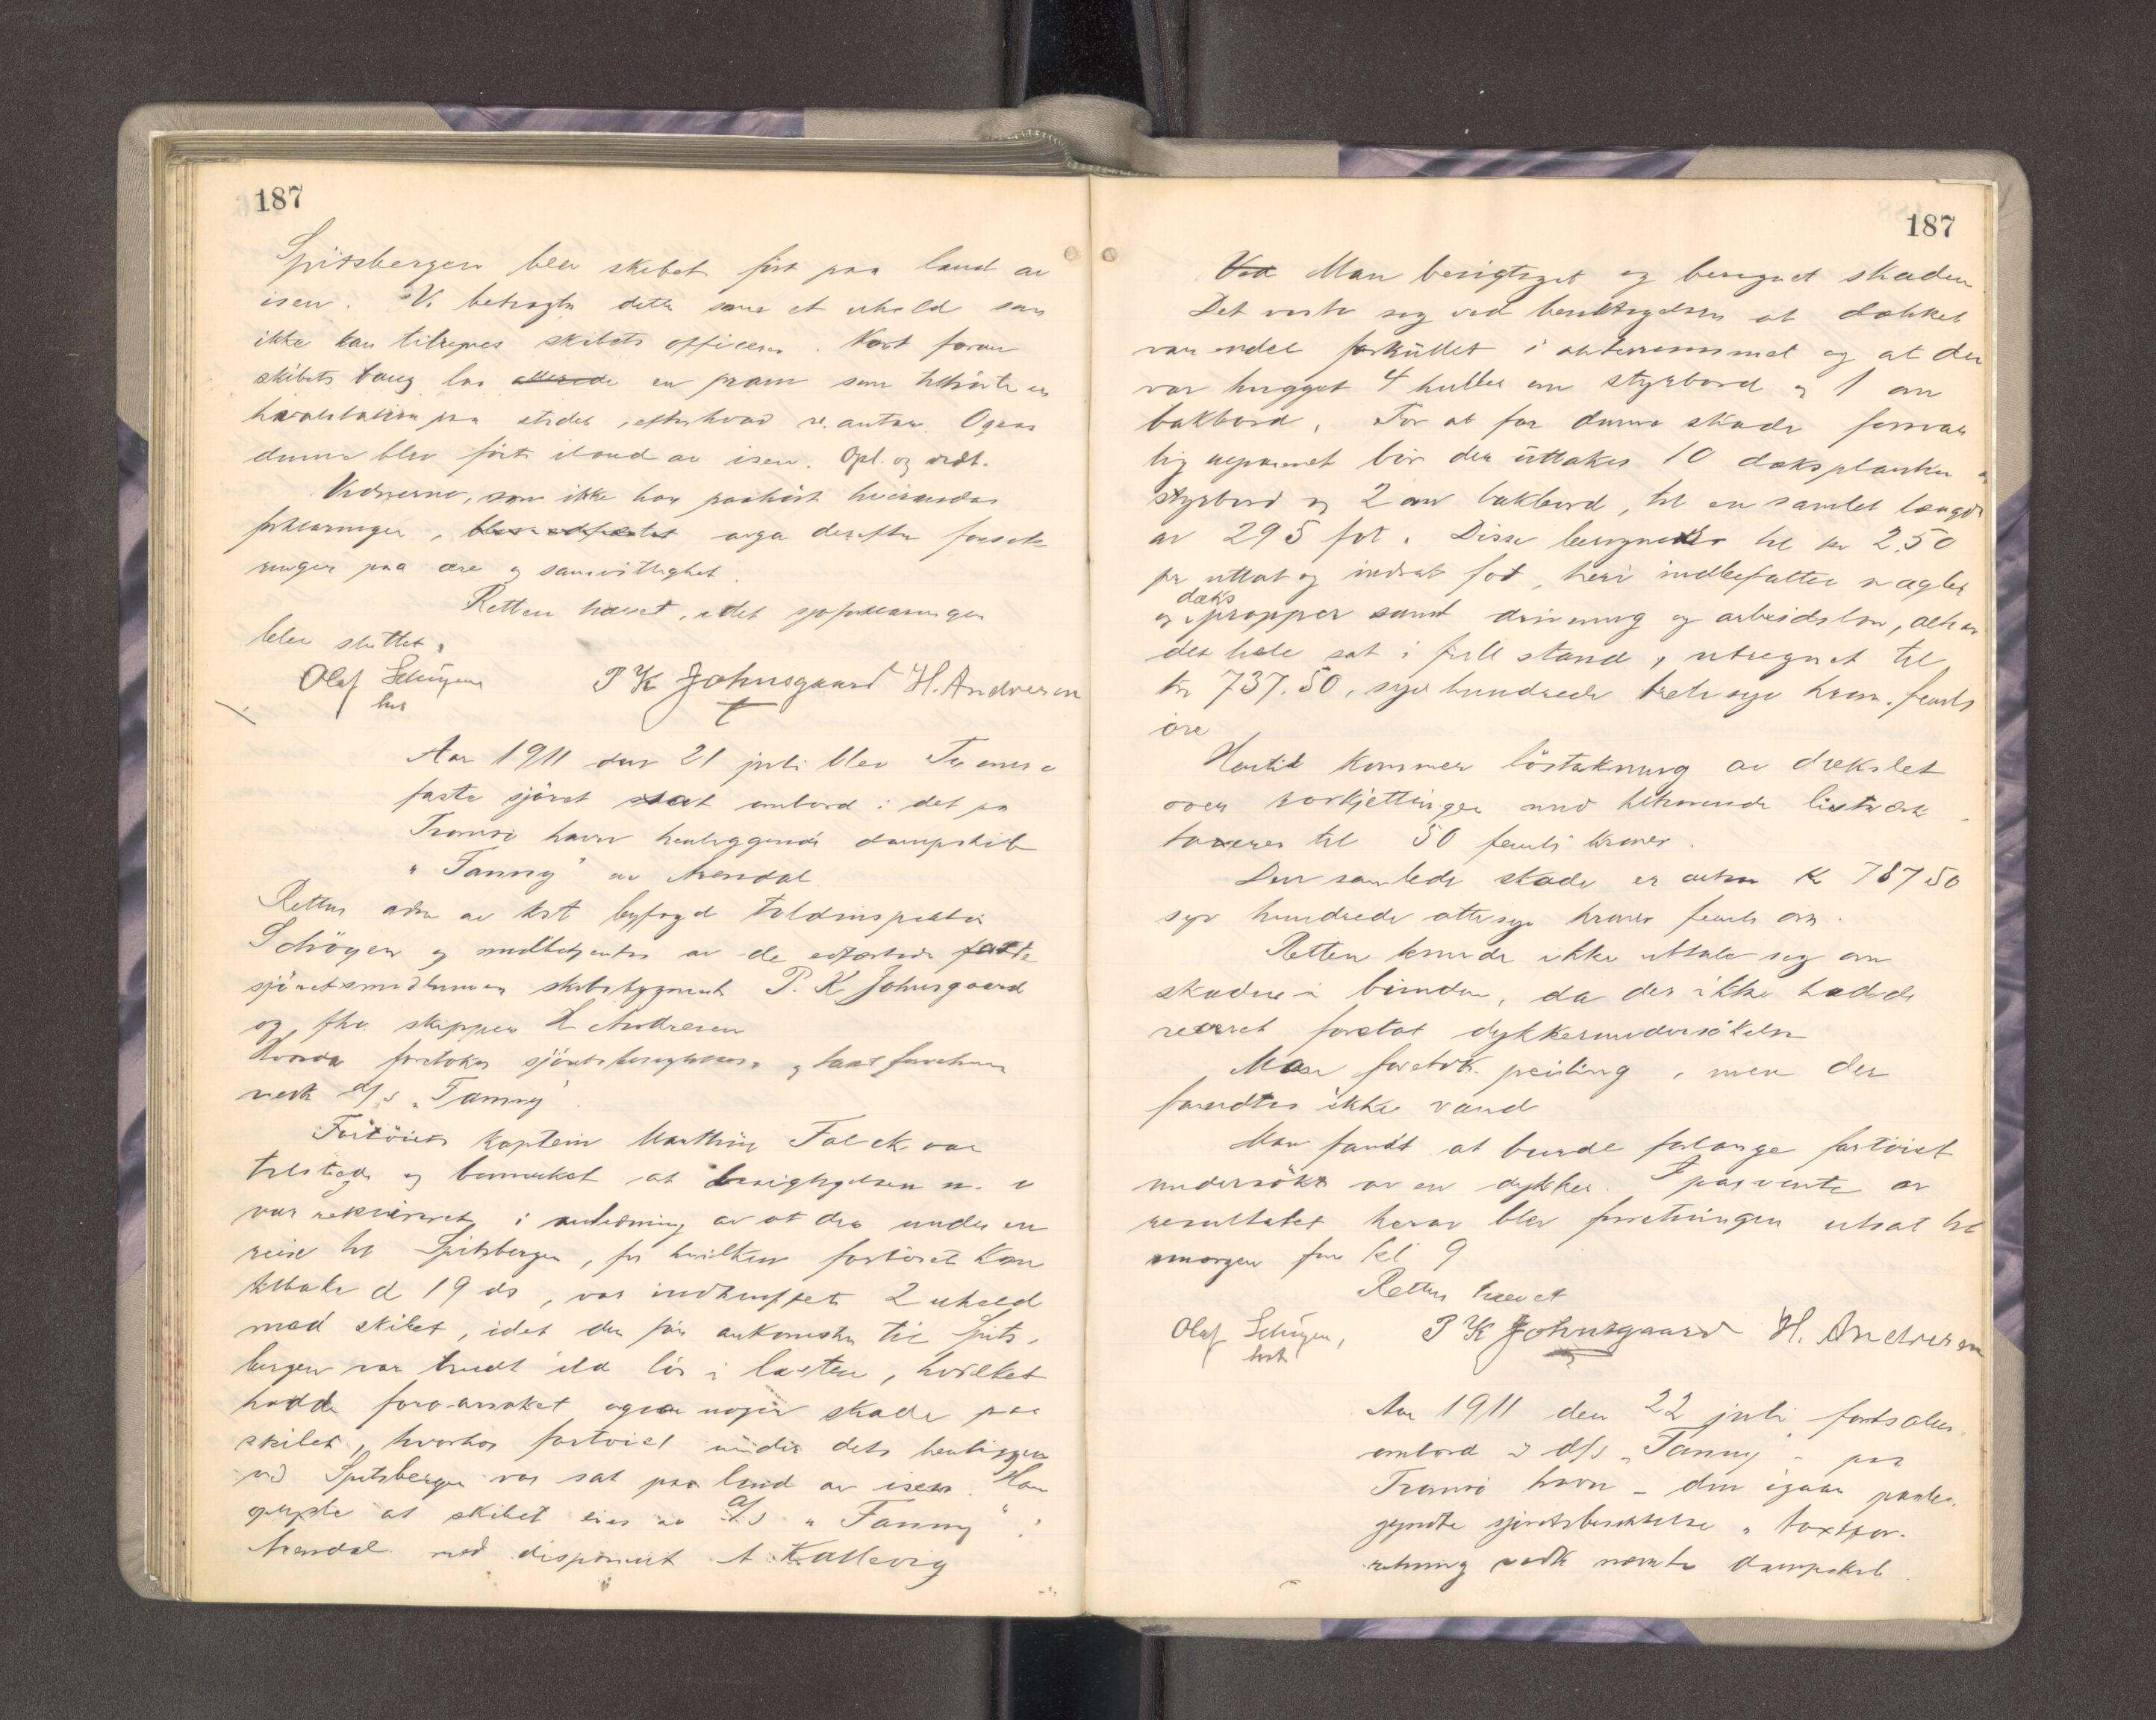 187
Spitsbergen blev skibet ført paa land av
isen. Vi betragter dette som et uheld som
ikke kan tilregnes skibets officerer. Kort foran
skibets baug laa allerede en pram som tilhørte en
hvalstation paa stedet, efter hvad v. antar. Ogsaa
denne blev ført iland av isen. Opl. og vedt.
Vidnerne, som ikke har paahørt hverandres
forklaringer, blev edfæstet avga derefter forsik-
ringer paa ære og samvittighet.
Retten hævet, idet sjøforklaringen
blev sluttet.
Olaf Schøyen P K Johnsgaard H. Andresen
Aar 1911 den 21 juli blev Tromsø
faste sjøret sat ombord i det paa
Tromsø havn henliggende dampskib
"Fanny" av Arendal
Retten adm av kst byfogd toldinspektør
Schøyen og medbetjentes av de edfæstede faste
sjøretsmedlemmer skibsbygmest P. K Johnsgaard
og fhv. skipper H Andresen
Hvorda foretokes sjøretsbesigtelses- og taxtforretning
vedk d/s "Fanny".
Fartøiets kaptein Marthin Falck var
tilstede og bemerket at besigtigelsen m. v
var rekvireret i anledning av at der under en
reise til Spitsbergen, fra hvilken fartøiet kom
tilbake d 19 ds, var indtruffet 2 uheld
med skibet, idet der før ankomsten til Spits-
bergen var brudt ild løs i lasten, hvilket
hadde foraarsaket ogsaa nogen skade paa
skibet, hvorhos fartøiet under dets henliggen
ved Spitsbergen var sat paa land av isen. Han
oplyste at skibet eies av A/S "Fanny" i
Arendal med disponent A Kallevig
187
Ved Man besigtiget og beregnet skaden
Det viste sig ved besiktigelsen at dækket
var endel forkullet i akterrummet og at der
var hugget 4 huller om styrbord og 1 om
bakbord. For at faa denne skade forsvar
lig reparert bør der uttakes 10 dæksplanker om
styrbord og 2 om bakbord, til en samlet længde
av 295 fot. Disse beregnes til kr 2.50
pr uttat og indsat fot, heri indbefattet nagler
og dæks propper samt drivning og arbeidsløn, altsaa
det hele sat i fuld stand, utregnet til
kr 737.50, syv hundrede treti syv kroner femti
øre
Hertil kommer løstakning av dækslet
over rorkjettingen med tilhørende listverk
taxeres til 50 femti kroner.
Den samlede skade er altsaa K 787 50
syv hundrede ottisyv kroner femti øre.
Retten kunde ikke uttale sig om
skaden i bunden, da der ikke hadde
været foretat dykkerundersøkelse
Man foretok peiling, men der
fandtes ikke vand
Man fandt at burde forlange fartøiet
undersøkt av en dykker. I paavente av
resultatet herav blev forretningen utsat til
imorgen fm kl 9
Retten hævet
Olaf Schøyen, P K Johnsgaard H. Andresen
Aar 1911 den 22 juli fortsattes
ombord i d/s "Fanny" paa
Tromsø havn - den igaar paabe-
gyndte sjøretsbesiktelse og taxtfor-
retning vedk nævnte dampskib.